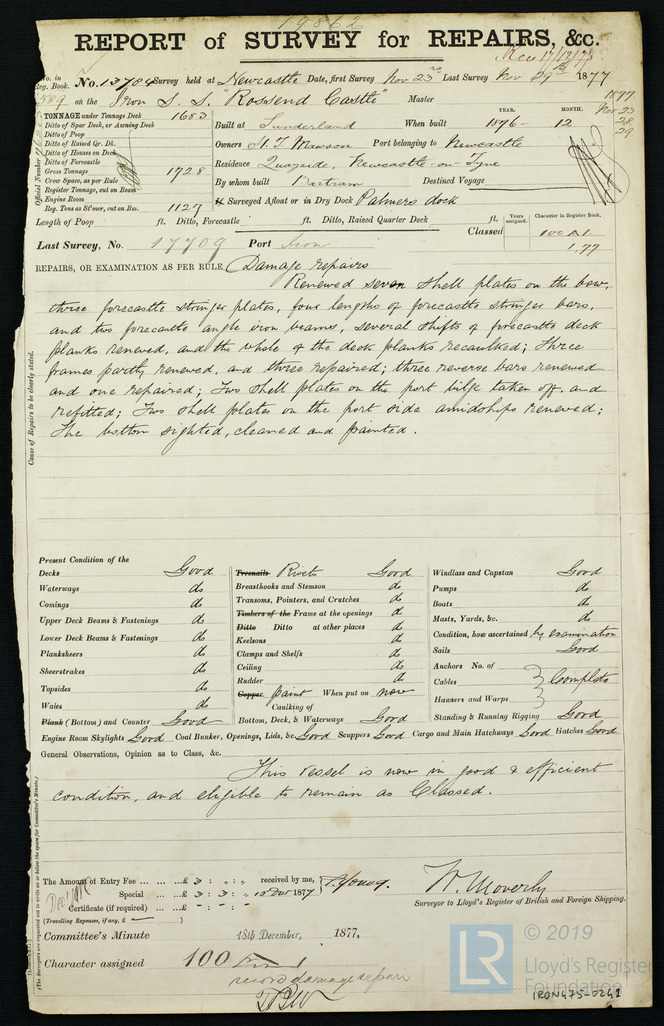 19862
REPORT of SURVEY for REPAIRS, &c.
Rec 17/12/77
No. in Reg. Book. No. 13704 Survey held at Newcastle Date, first Survey Nov 23rd Last Survey Nov 29th 1877
589 on the Iron S.S. "Rossend Castle" Master
1877
Nov 23
28
29
TONNAGE under Tonnage Deck 1683
Ditto of Spar Deck, or Awning Deck
Ditto of Poop
Ditto of Raised Qr. Dk.
Ditto of Houses on Deck
Ditto of Forecastle
Gross Tonnage 1728
Crew Space, as per Rule
Register Tonnage, cut on Beam
Engine Room
Reg. Tons as St'mer, cut on Bm. 1127
Official Number
YEAR. MONTH.
Built at Sunderland When built 1876 - 12
Owners H. T. Mawson Port belonging to Newcastle
Residence Quayside, Newcastle-on-Tyne
By whom built Bartram Destined Voyage
If Surveyed Afloat or in Dry Dock Palmers dock
Length of Poop ft. Ditto, Forecastle ft. Ditto, Raised Quarter Deck ft.
Years assigned. Character in Register Book.
Classed 100 A1.
1,77
Last Survey, No. 17709 Port Iron
REPAIRS, OR EXAMINATION AS PER RULE Damage repairs
Renewed seven shell plates on the bow,
three forecastle stringer plates, four lengths of forecastle stringer bars,
and two forecastle angle iron beams, several shifts of forecastle deck
planks renewed, and the whole of the deck planks recaulked; three
frames partly renewed, and three repaired; three reverse bars renewed
and one repaired; Two shell plates on the port bilge taken off, and
refitted; Two shell plates on the port side amidships renewed;
The bottom sighted, cleaned and painted.
Cause of Repairs to be clearly stated.
Present Condition of the
Decks Good
Waterways do
Comings do
Upper Deck Beams & Fastenings do
Lower Deck Beams & Fastenings do
Planksheers do
Sheerstrakes do
Topsides do
Wales do
Plank (Bottom) and Counter Good
Treenails Rivets Good
Breasthooks and Stemson do
Transoms, Pointers, and Crutches do
Timbers of the Frame at the openings do
Ditto Ditto at other places do
Keelsons do
Clamps and Shelfs do
Ceiling do
Rudder do
Copper paint When put on now
Caulking of
Bottom, Deck, & Waterways Good
Windlass and Capstan Good
Pumps do
Boats do
Masts, Yards, &c. do
Condition, how ascertained by examination
Sails Good
Anchors No. of
Cables Complete
Hawsers and Warps
Standing & Running Rigging Good
Engine Room Skylights Good Coal Bunker, Openings, Lids, &c. Good Scuppers Good Cargo and Main Hatchways Good Hatches Good
General Observations, Opinion as to Class, &c.
This vessel is now in good & efficient
condition, and eligible to remain as Classed.
The Amount of Entry Fee ... ... ... £ 3 : " : " received by me, T. Young.
Special ... £ 3 : 3 : " 15 Dec 1877
Certificate (if required) ... £ - : - : -
(Travelling Expenses, if any, £ )
W. Moverly
Surveyor to Lloyd's Register of British and Foreign Shipping.
Committee's Minute 18th December, 1877,
Character assigned 100 A 1
record damage repairs
© 2019
LR Lloyd's Register
Foundation
IRON475-0241